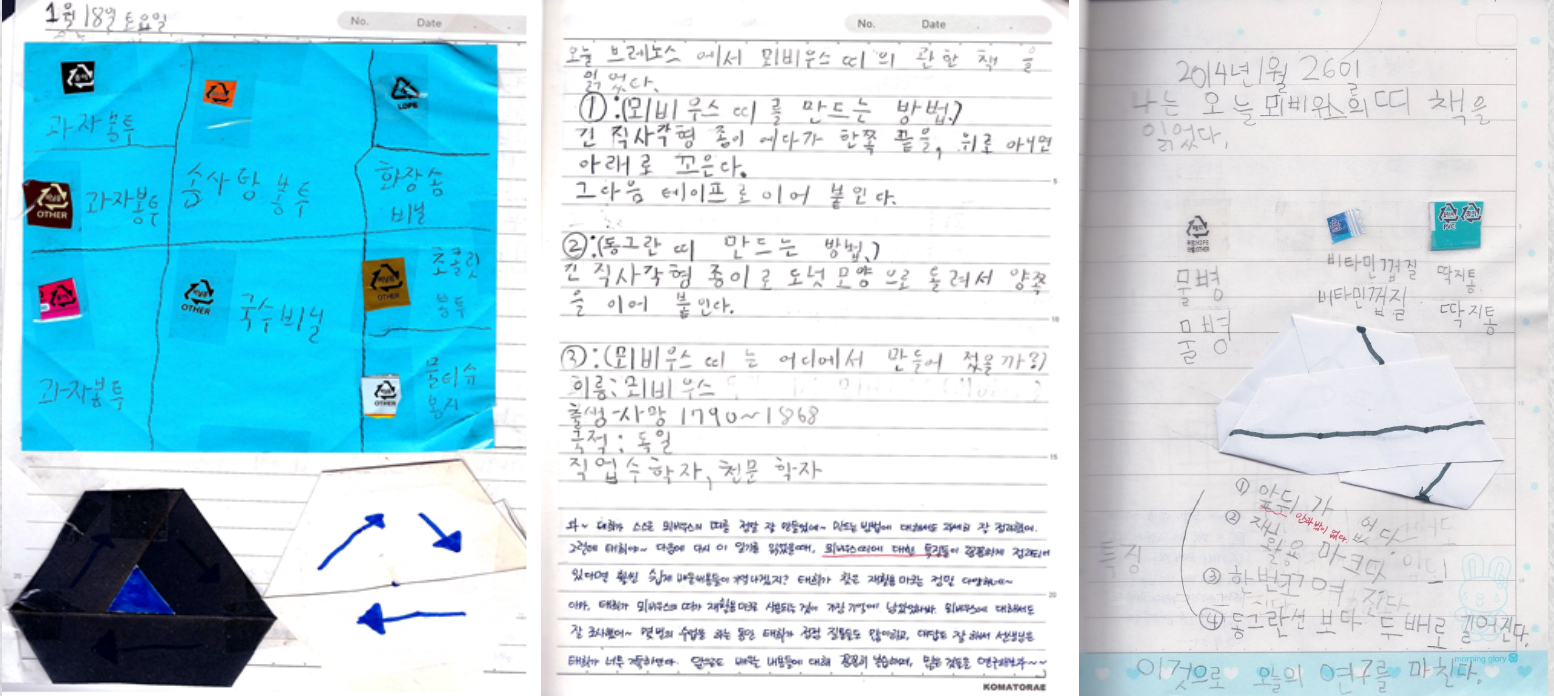 1월 18일 토요일
No. Date
과자봉투
LDPE
OTHER
과자봉투
솜사탕 봉투
화장솜
비닐
과자봉투
OTHER
국수비닐
OTHER
초콜릿
봉투
OTHER
물티슈
봉지
No. Date
오늘 브레노스 에서 뫼비우스 띠의 관한 책 을
읽었다.
①:(뫼비우스 띠를 만드는 방법.)
긴 직사각형 종이 에다가 한쪽 끝을, 위로 아니면
아래로 꼬은다.
그다음 테이프로 이어 붙인다.
②:(동그란 띠 만드는 방법.)
긴 직사각형 종이로 도넛 모양으로 돌려서 양쪽
을 이어 붙인다.
③:(뫼비우스 띠 는 어디에서 만들어 젔을까?)
이름: 뫼비우스
출생-사망 1790~1868
국적: 독일
직업수학자, 천문 학자
5
10
15
20
와~ 태희가 스스로 뫼비우스의 띠를 정말 잘 만들었네~ 만드는 방법에 대해서도 자세히 잘 정리했어.
그런데 태희야~ 다음에 다시 이 일기를 읽었을때, 뫼비우스띠에 대한 특징들이 꼼꼼하게 정리되어
있다면 훨씬 쉽게 배운내용들이 기억나겠지? 태희가 찾은 재활용 마크는 정말 다양하네~
아마, 태희가 뫼비우스의 띠가 재활용 마크로 사용되는 것이 가장 기억에 남았었나봐. 뫼비우스에 대해서도
잘 조사했어~ 몇 번의 수업을 하는 동안 태희가 점점 질문들도 많아지고, 대답도 잘 해서 선생님은
태희가 너무 기특하단다. 앞으로도 배운 내용들에 대해 꼼꼼히 복습하며, 많은 것들을 연구해보자~~
KOMATORAE
2014년1월 26일
나는 오늘뫼비우스의띠 책을
읽었다.
물병
물병
비타민껍질
비타민껍질
PVC
딱지통
딱지통
특징
① 앞뒤가 없다.
안과밖이 없다.
② 재활용 마크다
③ 한번꼬여 진다
④ 동그란선 보다 두배로 길어진다.
morning glory
이것으로 오늘의 연구를 마친다.